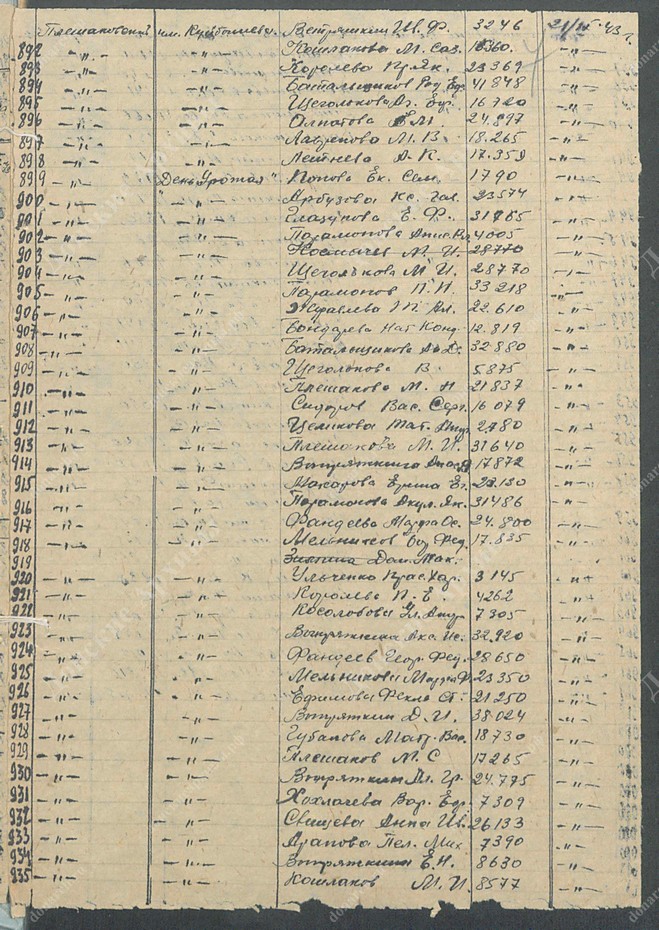 Плешаковский им. Куйбышева. Вотрячкин Ив. Ф. 3246 21/IV-43 г.
892 -"- -"- Кошлакова М. Саз. -"-
893 -"- -"- Королева Кр. Як. 23369 -"-
894 -"- -"- Батальщиков 41848 -"-
895 -"- -"- Щеголькова 16720 -"-
896 -"- -"- Алпатова Е М 24.897 -"-
897 -"- -"- М. В. 18.265 -"-
898 -"- -"- А. К. 17.359 -"-
899 -"- "День Урожая" Попова Ек. Сем. 1790 -"-
900 -"- -"- Арбузова Кс. Гав. 23574 -"-
901 -"- -"- Глазунова Е. Ф. -"-
902 -"- -"- Парамонова 4005 -"-
903 -"- -"- М. И. 28770 -"-
904 -"- -"- Щеголькова М И. 28770 -"-
905 -"- -"- Парамонов П. И. 33 218 -"-
906 -"- -"- Журавлева 22.610 -"-
907 -"- -"- Бондарева Нат Конд. 12.819 -"-
908 -"- -"- Батальщикова 32880 -"-
909 -"- -"- Щеголькова В. 5875 -"-
910 -"- -"- Плешакова М. Н 21837 -"-
911 -"- -"- Сидоров Вас. Серг. 16079 -"-
912 -"- -"- Целикова Мат. 2780 -"-
913 -"- -"- Плешакова М. И. 31640 -"-
914 -"- -"- 17872 -"-
915 -"- -"- Макарова -"-
916 -"- -"- Парамонова Акул. Як. 31486 -"-
917 -"- -"- Фандеева Марфа Ос. 24.800 -"-
918 -"- -"- Мельников Фед. 17.635 -"-
919 Дом. Мак.
920 -"- -"- Ульченко Прас. Хар. 3145 -"-
921 -"- -"- Королева П. Е. 4262 -"-
922 -"- -"- Косолобова 7305 -"-
923 -"- -"- 32.920 -"-
924 -"- -"- Фандеев Геор. Фед. 28650 -"-
925 -"- -"- Мельникова 23350 -"-
926 -"- -"- Ефимова Фекла Ст. 21250 -"-
927 -"- -"- Вотряткин Д. И. 38024 -"-
928 -"- -"- Губанова Матр. Вас. 18730 -"-
929 -"- -"- Плешаков М. С 17265 -"-
930 -"- -"- Вотряткин Ал. Гр. 24.775 -"-
931 -"- -"- Хохлачева Вар. Егор. 7309 -"-
932 -"- -"- Свищева Анна Ив. 26133 -"-
933 -"- -"- Арапова Пел. Мах. 7390 -"-
934 -"- -"- Вотряткин Е. Н. 8630 -"-
935 -"- -"- Кошлаков М. И. 8577 -"-